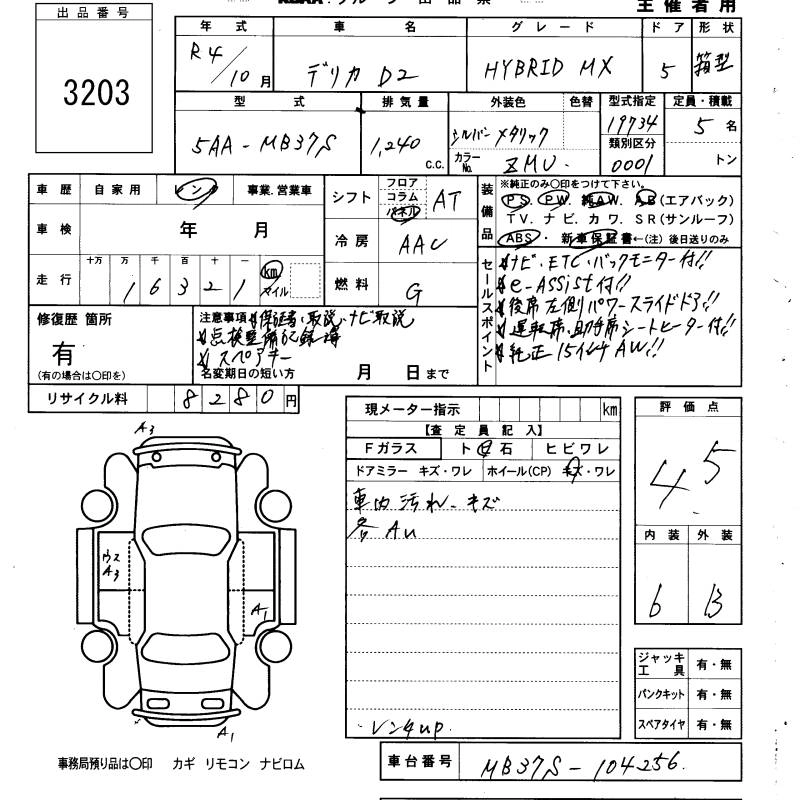 出品番号
3203
主催者用
年式 車名 グレード ドア 形状
R4/10月 デリカD2 HYBRID MX 5 箱型
型式 排気量 外装色 色替 型式指定 定員・積載
5AA-MB37S 1,240 c.c. シルバーメタリック 19734 5名
類別区分
カラーNo. ZMU 0001 トン
車歴 自家用 レンタ 事業.営業車
シフト フロア コラム パネル AT
装備品
※純正のみ〇印をつけて下さい。
PS. PW. 純AW. AB(エアバック)
TV. ナビ. カワ. SR(サンルーフ)
ABS・新車保証書←(注)後日送りのみ
車検 年 月
冷房 AAC
走行 十万 万 千 百 十 一 km マイル
1 6 3 2 1
燃料 G
セールスポイント
ナビ・ETC・バックモニター付!!
e-Assist付!!
後席左側パワースライドドア!!
運転席・助手席シートヒーター付!!
純正15インチAW!!
修復歴 箇所
有
(有の場合は〇印を)
注意事項 保証書・取説・ナビ取説
点検整備記録簿
スペアキー
名変期日の短い方 月 日まで
リサイクル料 8280円
現メーター指示 km
【査定員記入】
Fガラス ト 石 ヒビワレ
ドアミラー キズ・ワレ ホイール(CP) キズ・ワレ
車内汚れ・キズ
各AU
・レンタup.
評価点
4.5
内装 外装
6 B
A3
ウス
A3
A1
A1
ジャッキ工具 有・無
パンクキット 有・無
スペアタイヤ 有・無
事務局預り品は〇印 カギ リモコン ナビロム
車台番号 MB37S-104256.